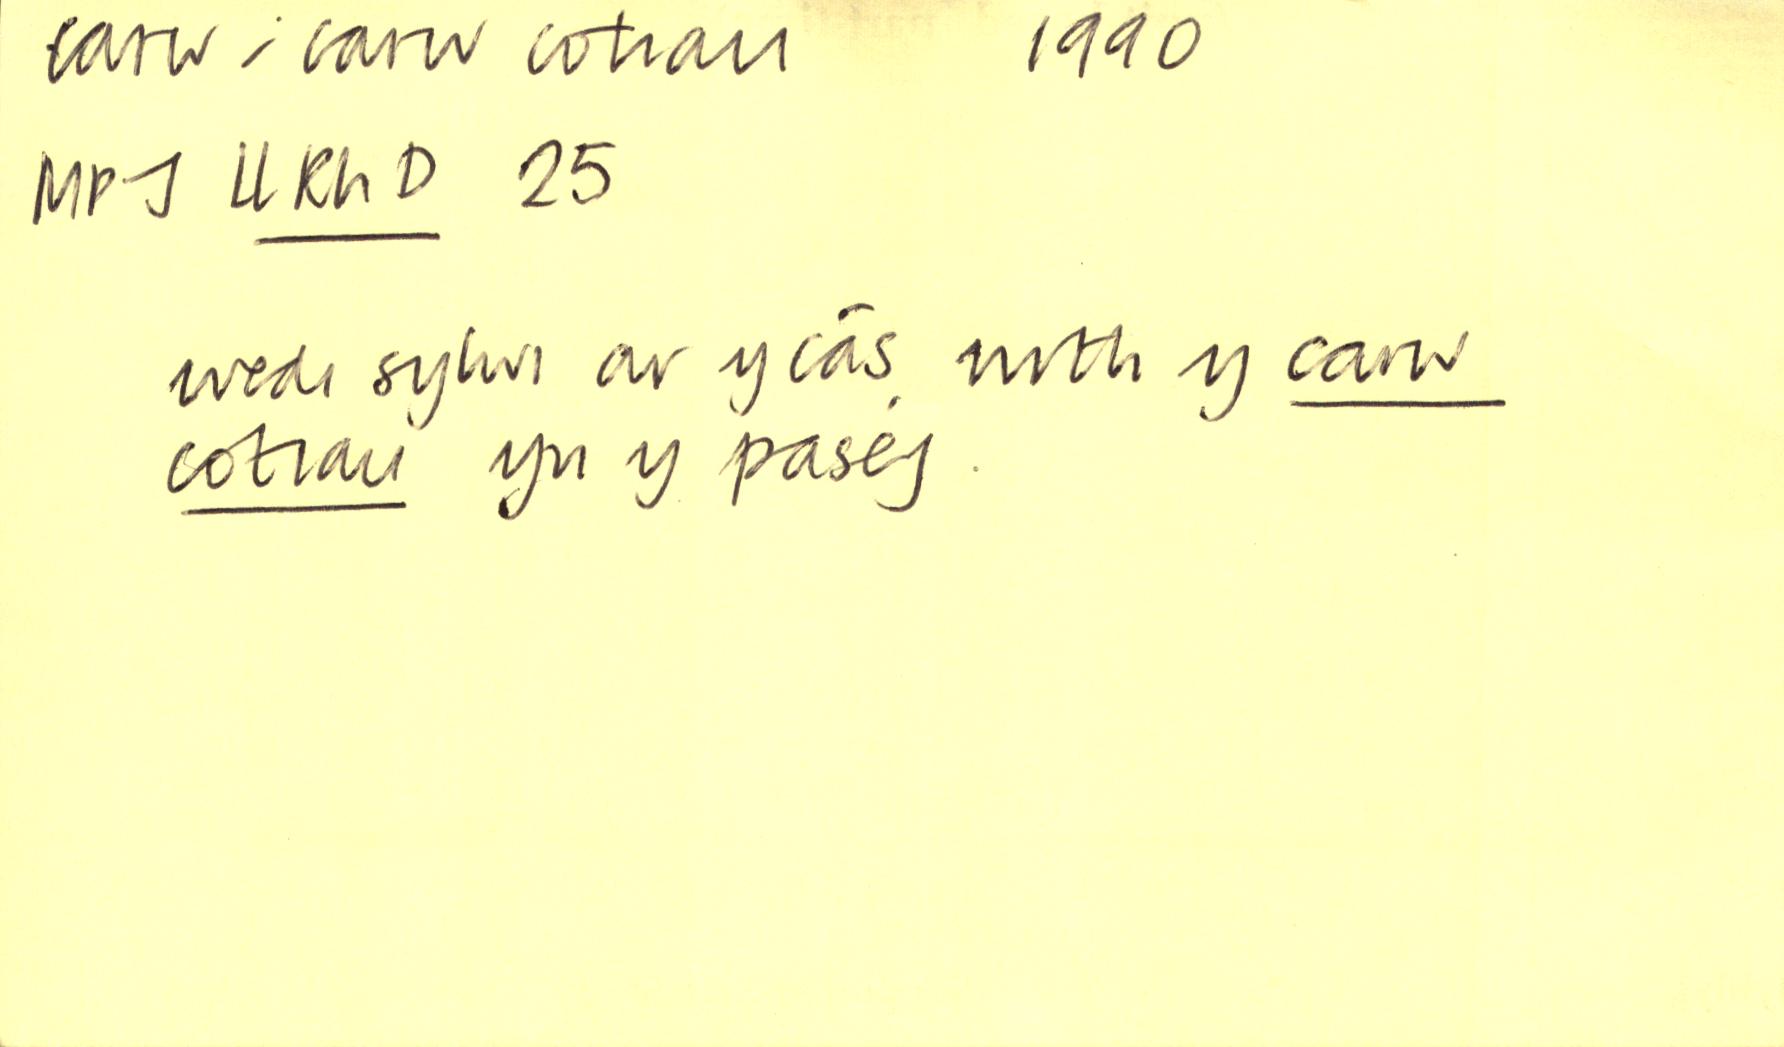 carw : carw cotiau 1990
MPJ LlRhD 25
wedi sylwi ar y câs wrth y carw
cotiau yn y pasej.